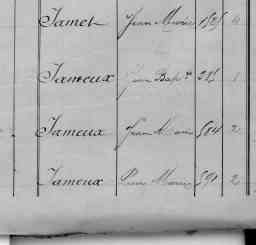 Jamet Jean Marie 4
Jameux Jean Bapte 1
Jameux Jean Marie 584 2
Jamoux Marie 591 2